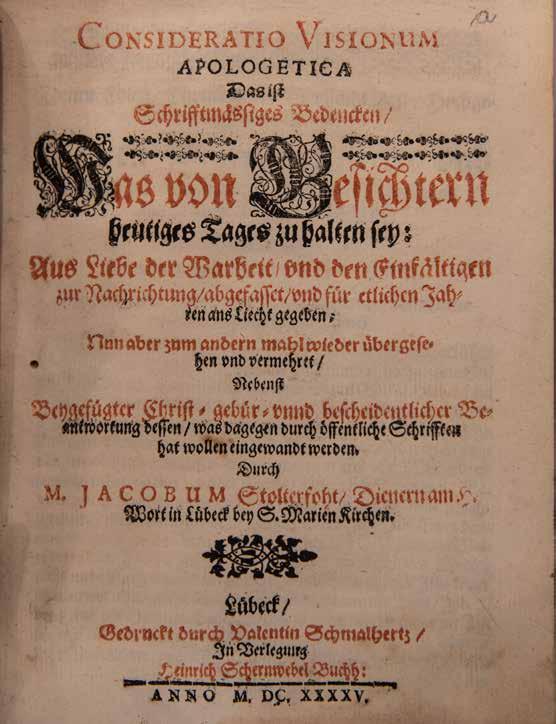 CONSIDERATIO VISIONUM
APOLOGETICA
Das ist
Schrifftmässiges Bedencken /
Was von Gesichtern
heutiges Tages zu halten sey:
Aus Liebe der Warheit / vnd den Einfältigen
zur Nachrichtung / abgefasset / vnd für etlichen Jah-
ren ans Liecht gegeben:
Nun aber zum andern mahl wieder übergese-
hen vnd vermehret /
Nebenst
Beygefügter Christ- gebür- vnnd bescheidentlicher Be-
antwortung dessen / was dagegen durch öffentliche Schrifften
hat wollen eingewandt werden.
Durch
M. JACOBUM Stolterfoht / Dienern am H.
Wort in Lübeck bey S. Marien Kirchen.
Lübeck /
Gedruckt durch Valentin Schmalhertz /
In Verlegung
Heinrich Schernwebel Buchh:
ANNO M. DC. XXXXV.